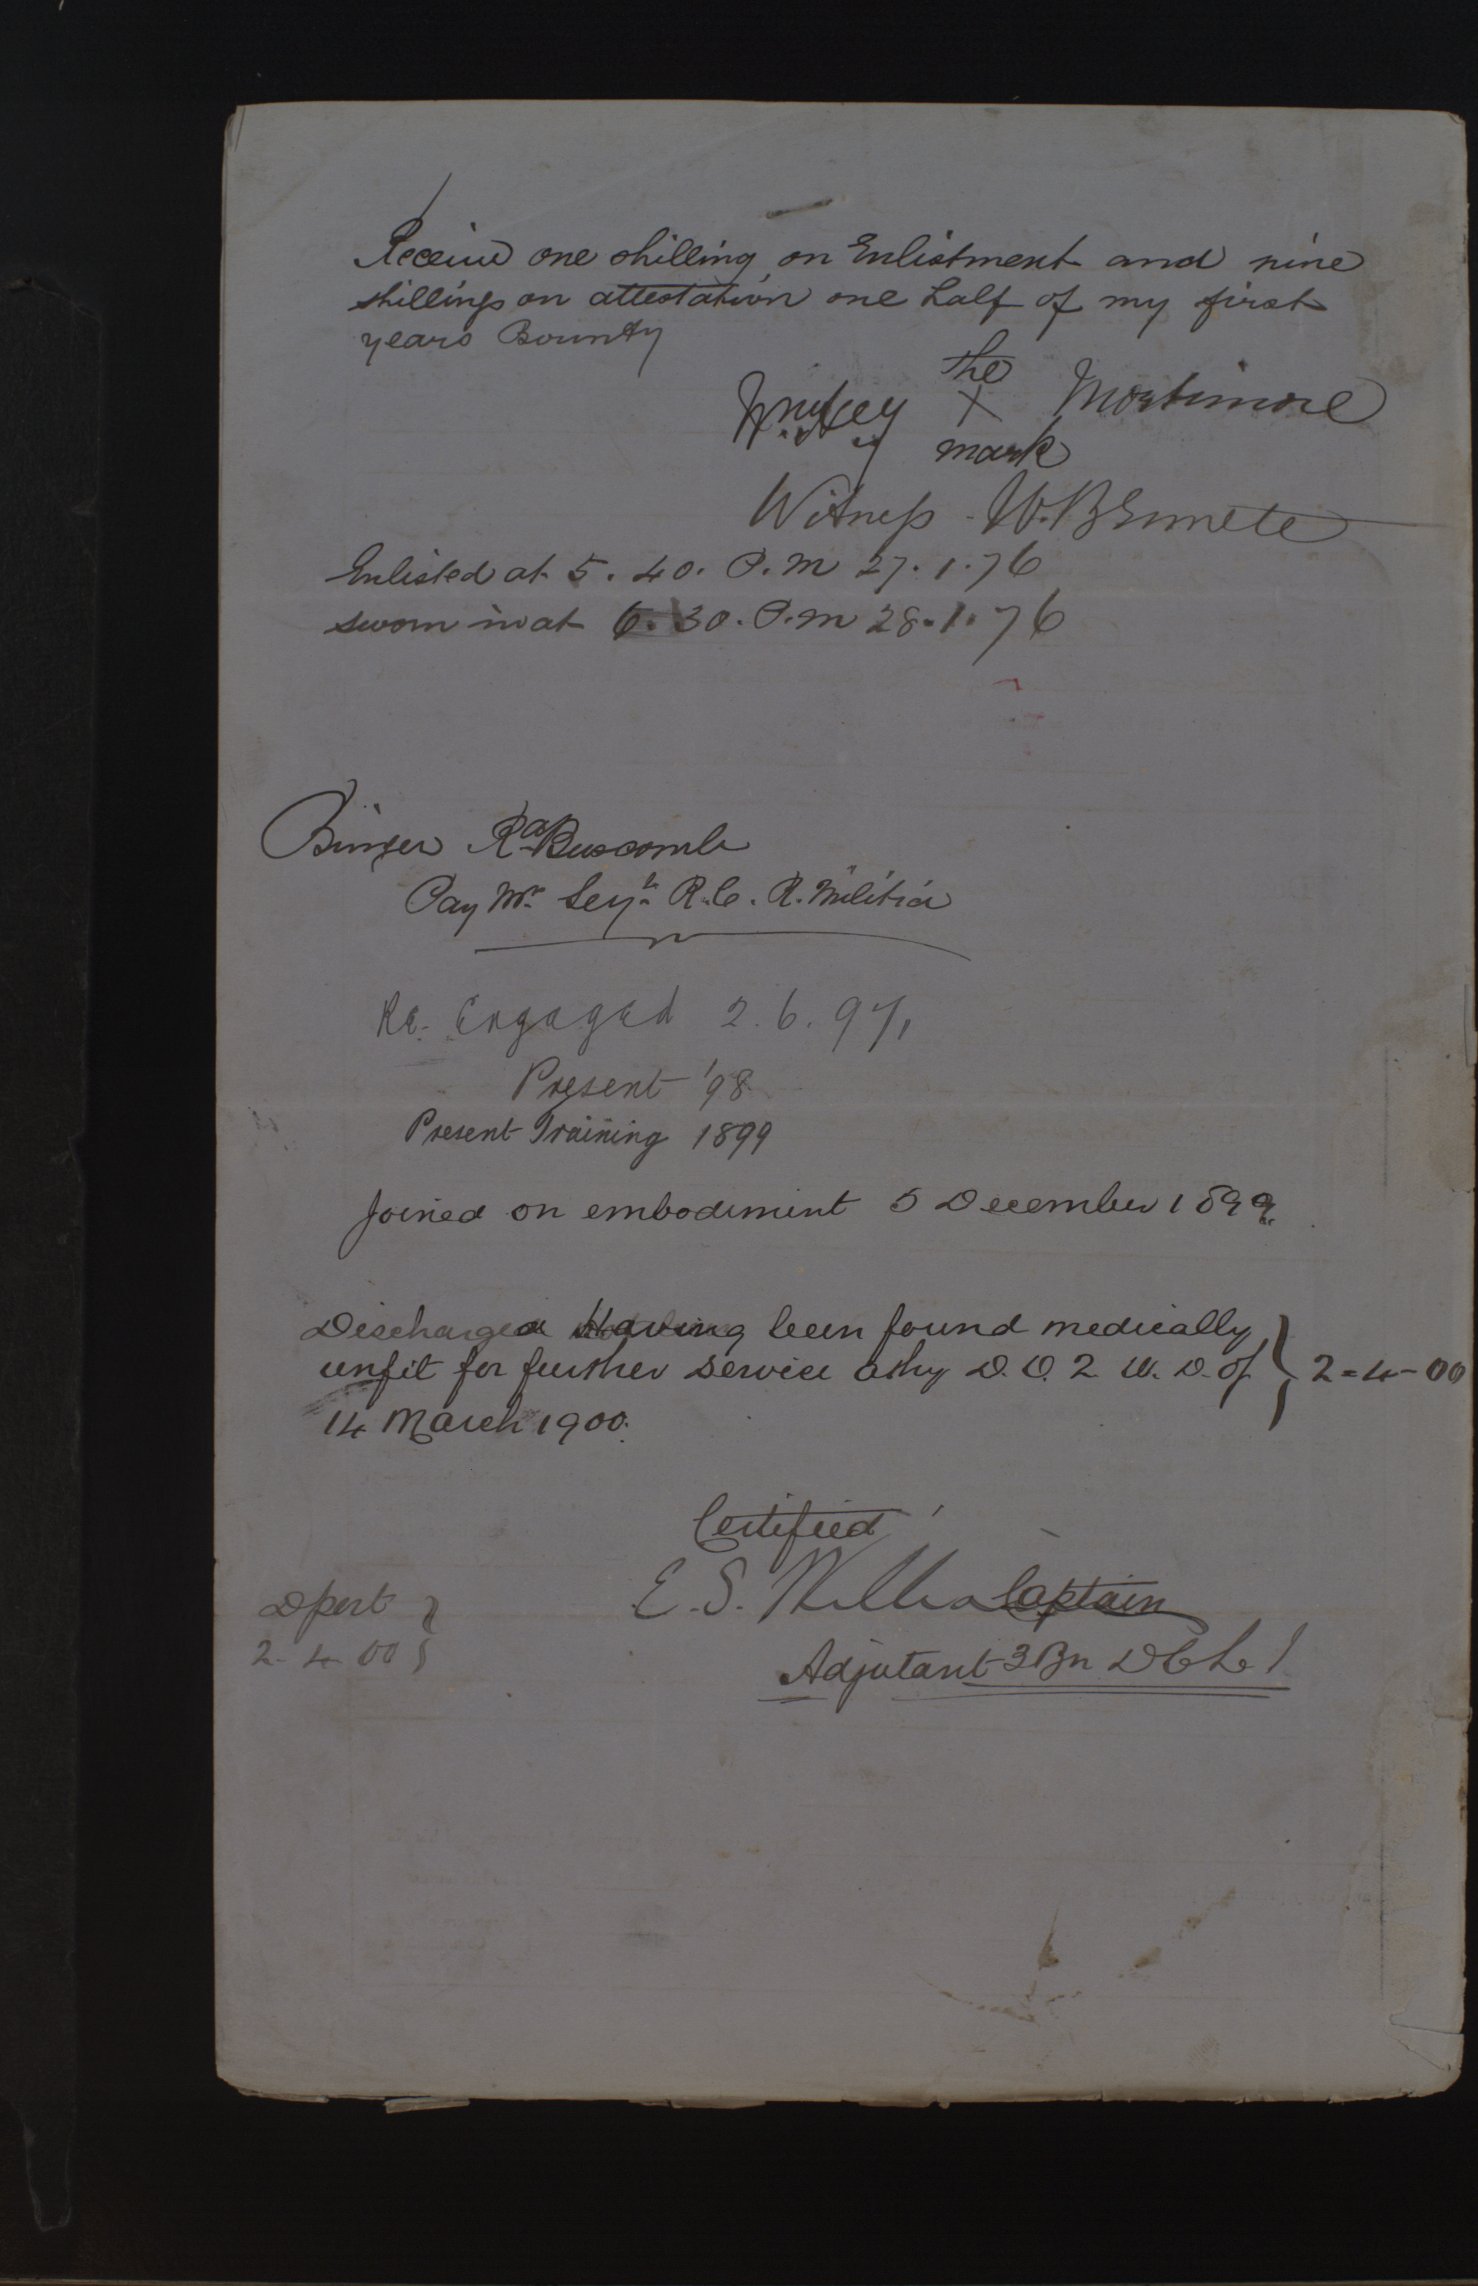 Receivd one shilling on Enlistment and nine
shillings on attestation one half of my first
years Bounty
the
X Mortimore
mark
Witness W. B
Enlisted at 5.40. P.M 27.1.76
sworn in at 6.30. P.M 28.1.76
Buscomb
Pay Mr Serjt R.C.R. Militia
Re-Engaged 2.6.97
Present '98
Present Training 1899
Joined on embodiment 5 December 1899
Discharged Having been found medically
unfit for further service D.O. 2 W. D. of } 2-4-00
14 March 1900.
Certified
E. S. Captain
Adjutant 3 Bn DCLI
Dport }
2-4-00 }